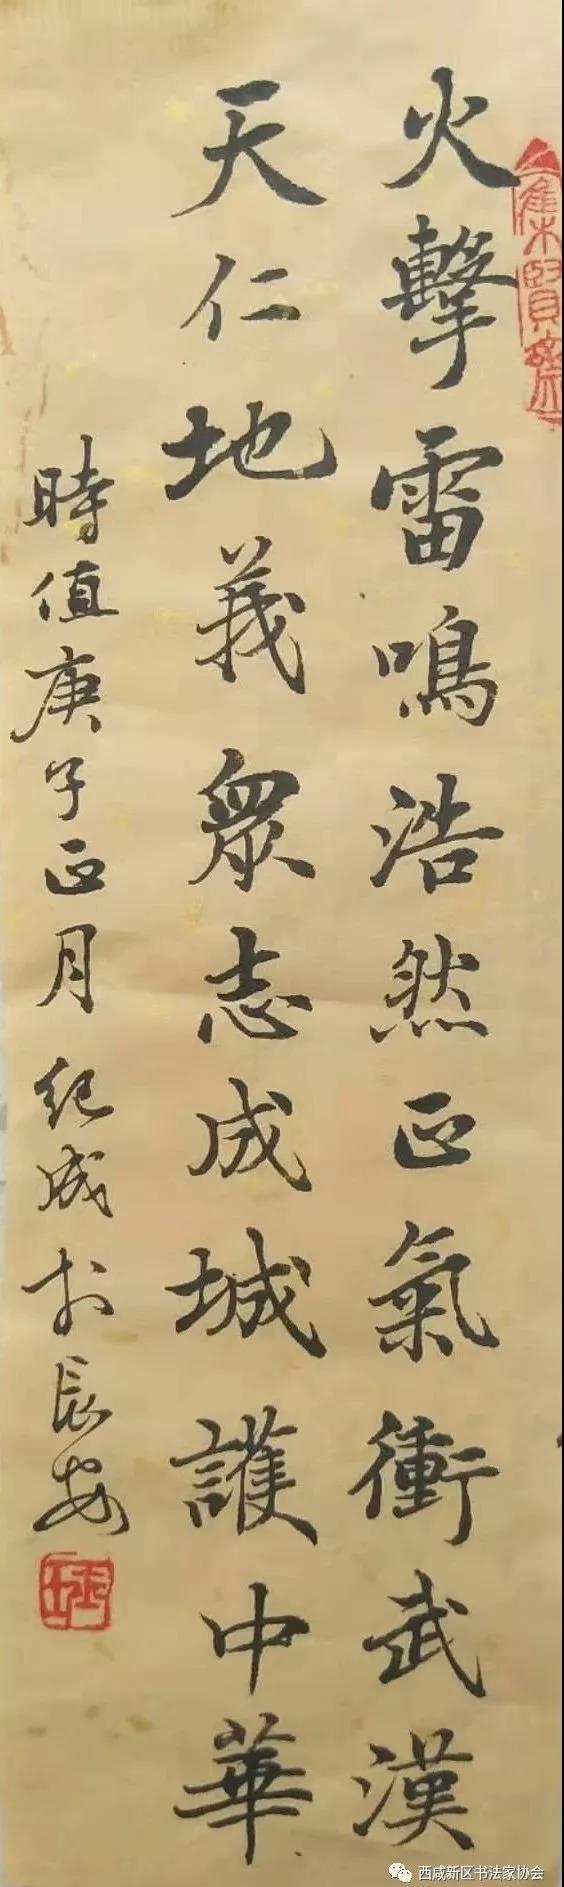 火擊雷鳴浩然正氣衝武漢
天仁地義眾志成城護中華
時值庚子正月紀成於長安
集賢齋
西咸新区书法家协会